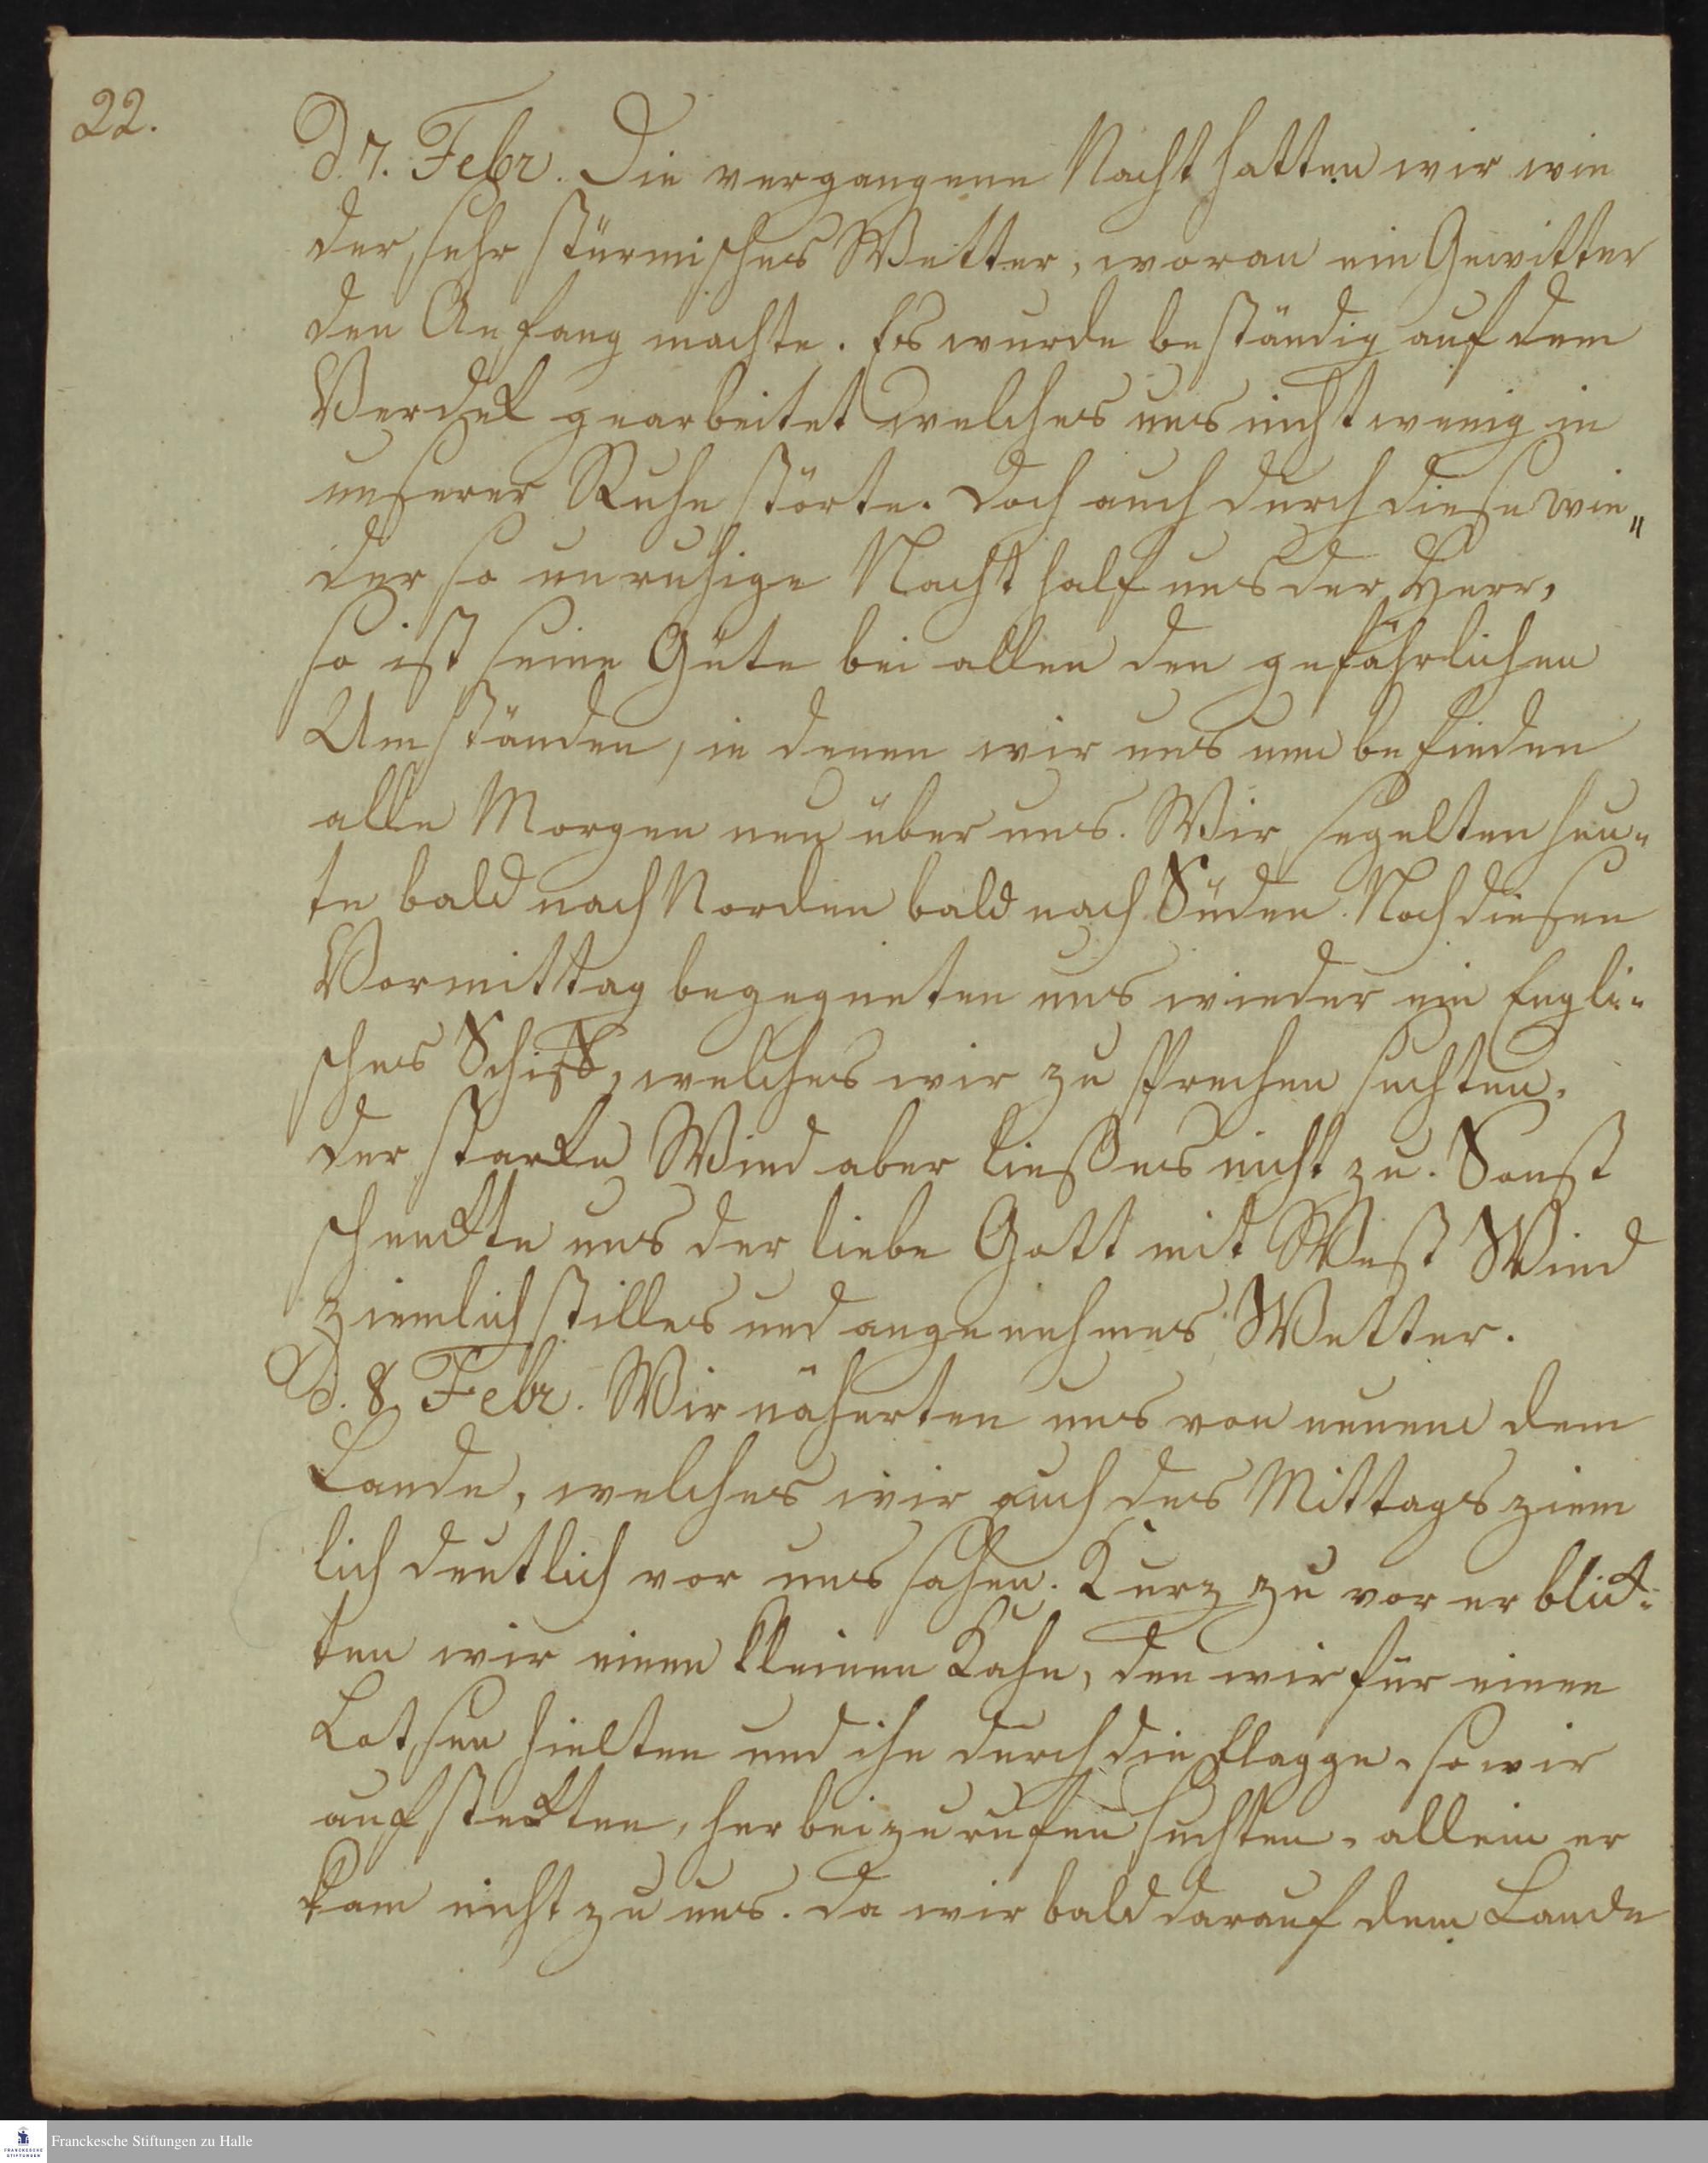 22.
D. 7. Febr. Die vergangene Nacht hatten wir wie
der sehr stürmisches Wetter, woran ein Gewitter
den Anfang machte. Es wurde beständig auf dem
Verdek gearbeitet welches uns nicht wenig in
unserer Ruhe störte. Doch auch durch diese wie„
der so unruhige Nacht half uns der Herr,
so ist seine Güte bei allen den gefährlichen
Umständen, in denen wir uns nun befinden
alle Morgen neu über uns. Wir segelten heu„
te bald nach Norden bald nach Süden. Noch diesen
Vormittag begegneten uns wieder ein Engli„
sches Schiff, welches wir zu sprechen suchten,
der starke Wind aber ließ es nicht zu. Sonst
schenkte uns der liebe Gott mit West Wind
ziemlich stilles und angenehmes Wetter.
D. 8. Febr. Wir näherten uns von neuem dem
Lande, welches wir auch des Mittags ziem
lich deutlich vor uns sahen. Kurz zu vor erblick„
ten wir einen kleinen Kahn, den wir für einen
Lotsen hielten und ihn durch die Flagge, so wir
aufstekten, herbeizurufen suchten, allein er
kam nicht zu uns. Da wir bald darauf dem Lande
FRANCKESCHE STIFTUNGEN
Franckesche Stiftungen zu Halle